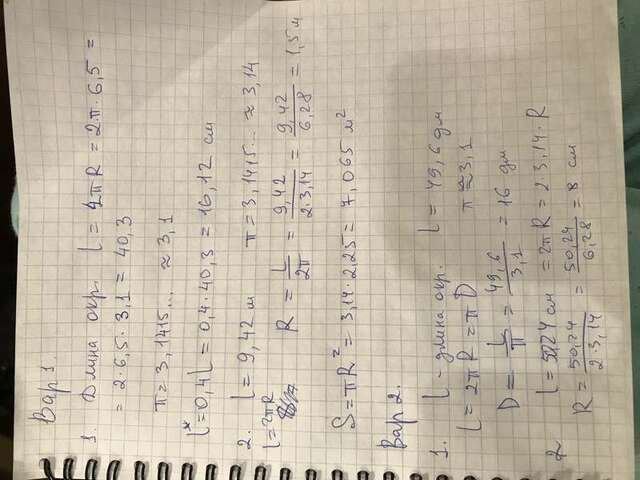 Вар 1.
1. Длина окр. l = 2πR = 2·π·6,5 =
= 2·6,5·3,1 = 40,3
π = 3,1415... ≈ 3,1
l* = 0,4l = 0,4·40,3 = 16,12 см
2. l = 9,42 м π = 3,1415... ≈ 3,14
l = 2πR
R = l/2π = 9,42/2·3,14 = 9,42/6,28 = 1,5 м
S = πR² = 3,14·2,25 = 7,065 м²
Вар 2.
1. l - длина окр. l = 49,6 дм
l = 2πR = πD π ≈ 3,1
D = l/π = 49,6/3,1 = 16 дм
2 l = 50,24 см = 2πR = 2·3,14·R
R = 50,24/2·3,14 = 50,24/6,28 = 8 см